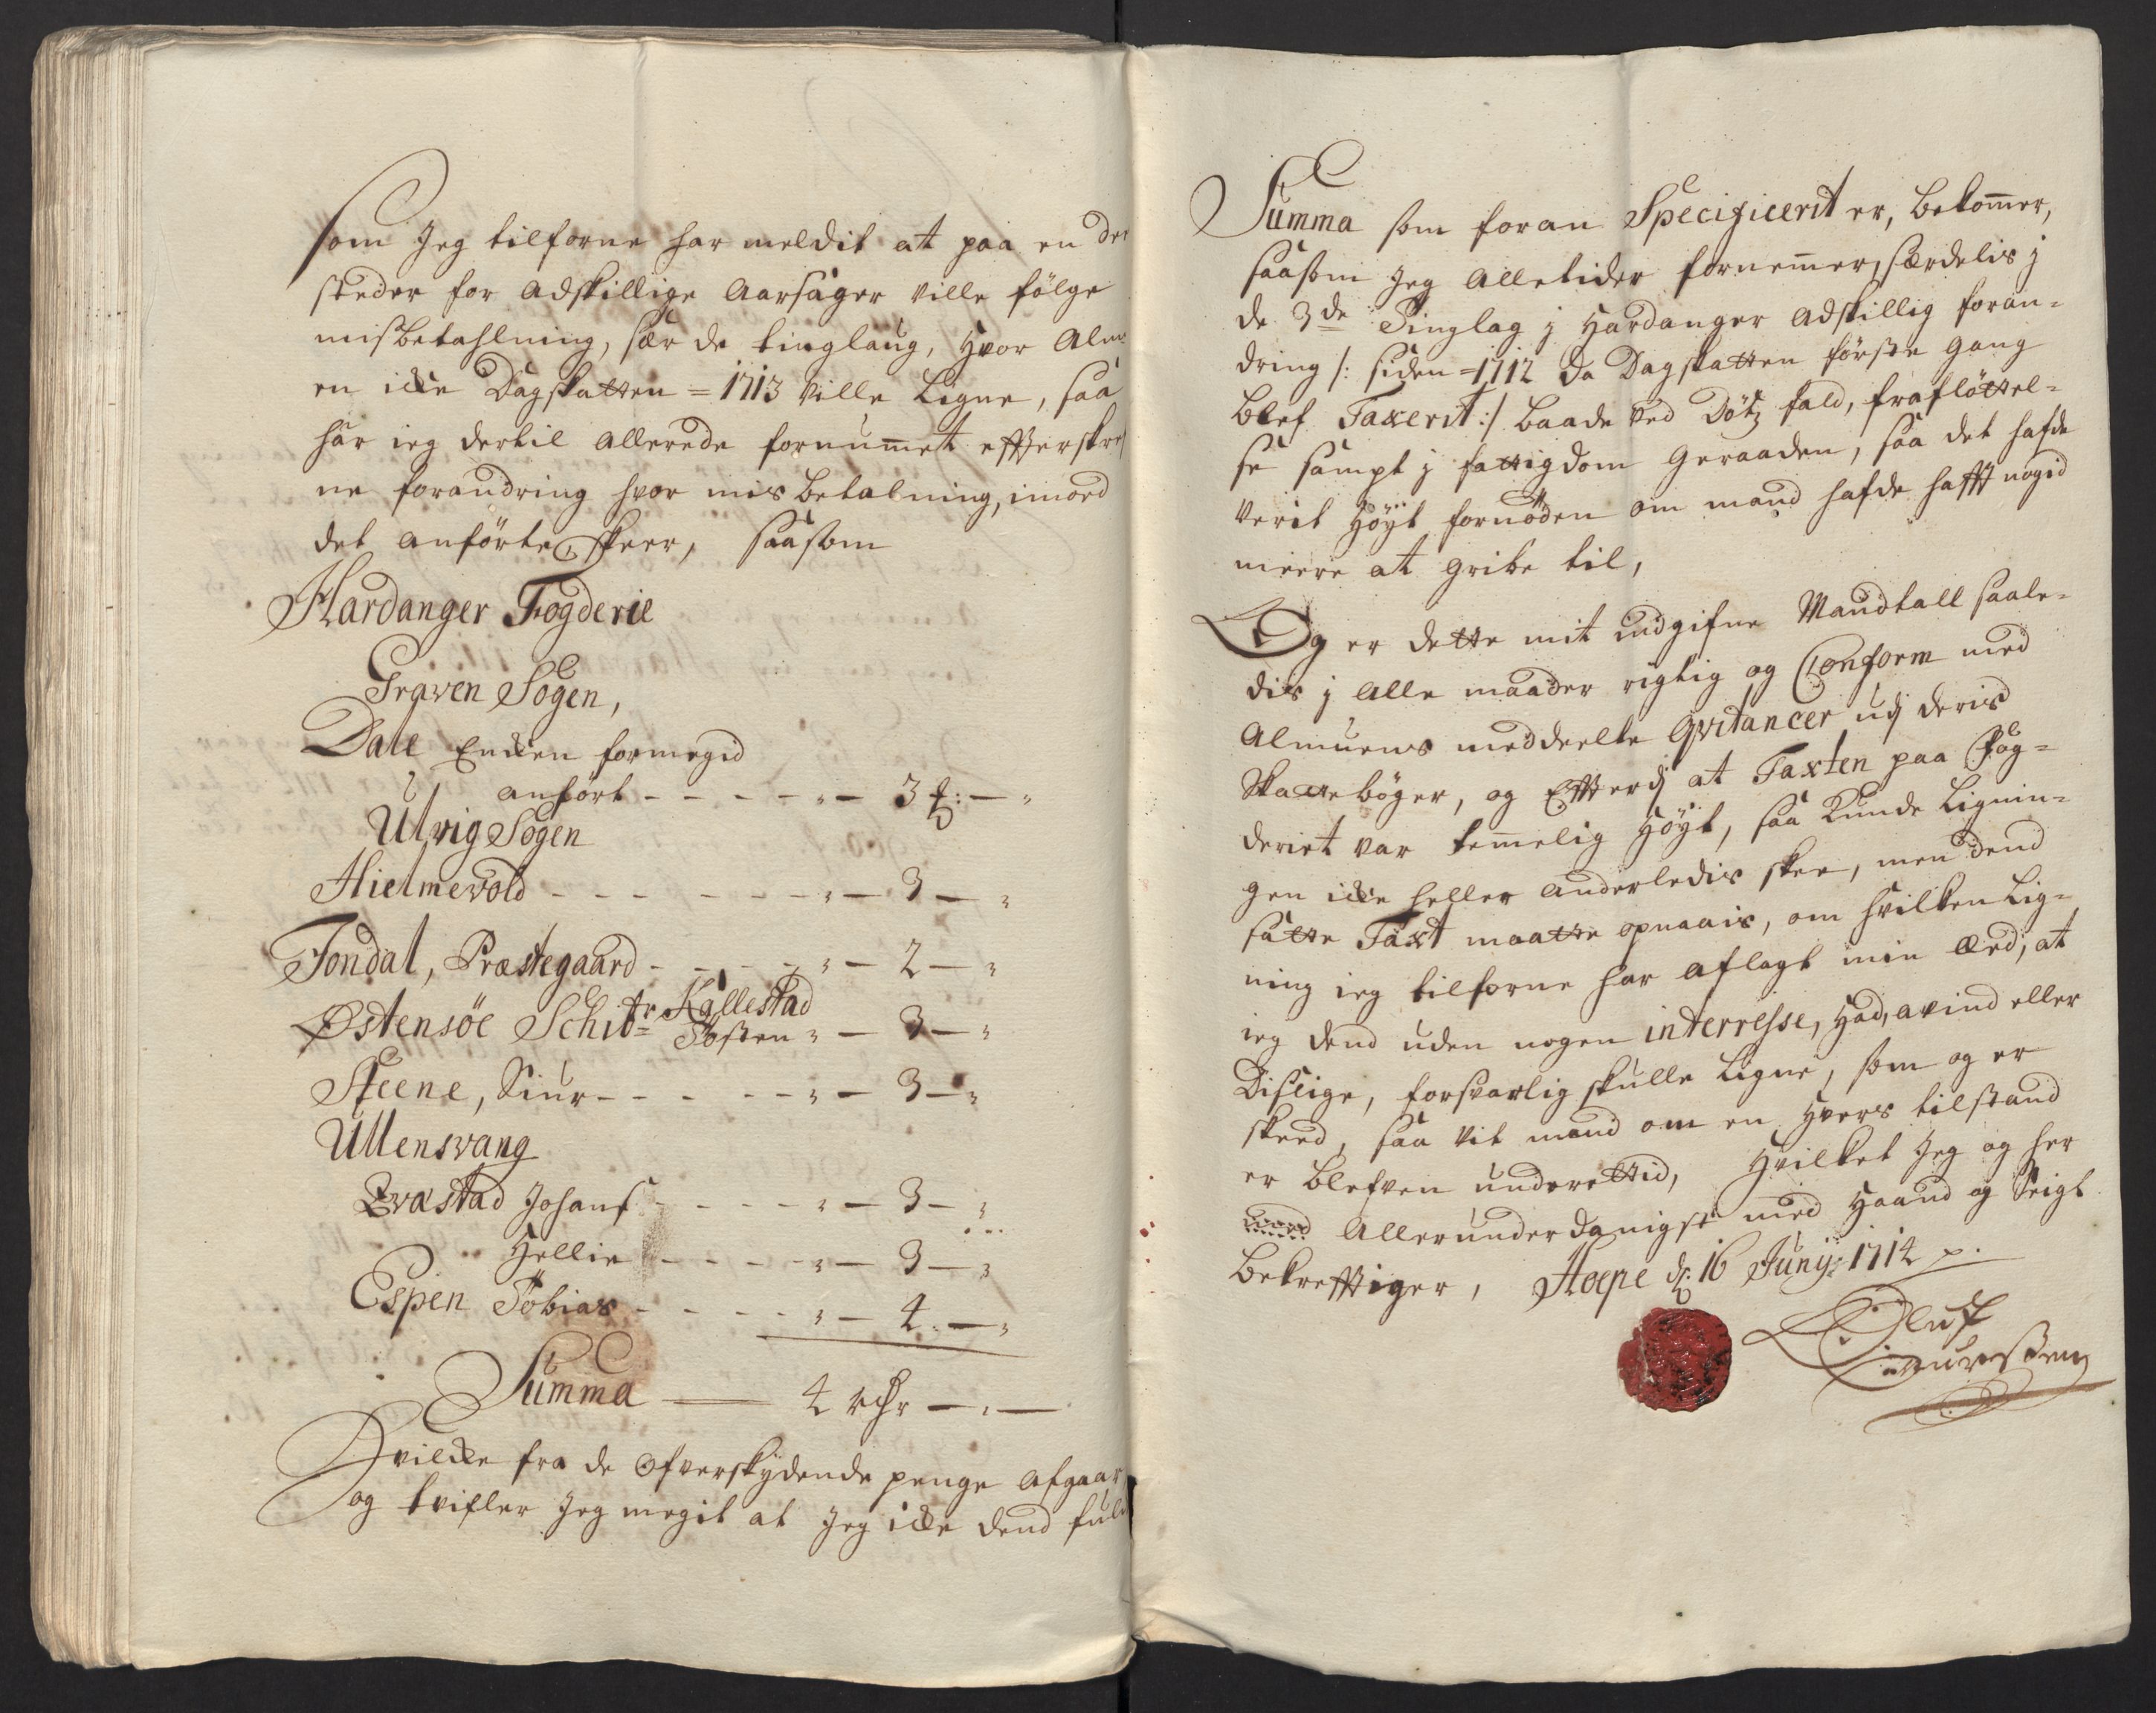 Som Jeg tilforne har meldit at paa en deel
steder for adskillige Aarsager ville fölge
misbetahlning, sær de tinglaug, hvor Alm
en icke Dagskatten = 1713 ville Ligne, saa
har ieg dertil allerede fornum̅et effterskref
ne forandring hvor mis betalning, imod
det anförte skeer, saasom
Hardanger Fogderie
Graven Sogen,
Dale Encken formegid
anfört - - - - - „ — 3 ℔: — „
Ulvig Sogen
Hielmevold - - - - - - - „ — 3 — „
Jondal, Præstegaard - - - - - „ — 2 — „
Östensöe Schibr Kallestad
Tosten „ — 3 — „
Steene, Siur - - - - - „ — 3 — „
Ullensvang
Qvæstad Johans - - - - „ — 3 — „
Hellie - - - - „ — 3 — „
Espen Tobias - - - - „ — 4 — „
Summa — 4 rdr — „ —
Hvilcke fra de Ofverskydende penge afgaar
og tvifler Jeg megit at Jeg icke dend fuld
Summa som foran Specificerit er, bekom̅er,
saasom Jeg alletider fornem̅er, særdelis j
de 3de Tinglag j Hardanger adskillig foran-
dring /: siden = 1712 da Dagskatten förste gang
blef Taxerit :/ baade ved Döds fald, fraflöttel-
se sampt j fattigdom geraaden, saa det hafde
verit höyt fornöden om mand hafde hafft nogid
meere at gribe til,
Og er dette mit udgifne Mandtall saale-
dis j alle maader rigtig og Conform med
Almuens meddeelte Qvitancer udj deris
Skattebøger, og Effterdj at Taxten paa Fog-
deriet var tem̅elig höyt, saa kunde Lignin-
gen icke heller anderledis skee, men dend
satte Taxt maatte opnaais, om hvilken Lig-
ning ieg tilforne har aflagt min Æed, at
ieg dend uden nogen interresse, had, avind eller
Disl​ige, forsvarlig skulle Ligne, som og er
skeed, saa vit mand om en hvers tilstand
er blefven underettid, Hvilket Jeg og her
med allerunderdanigst med Haand og Seigl
bekreffter, Hope d: 16 Junij: 1714 p.
Oluf
Laurssen